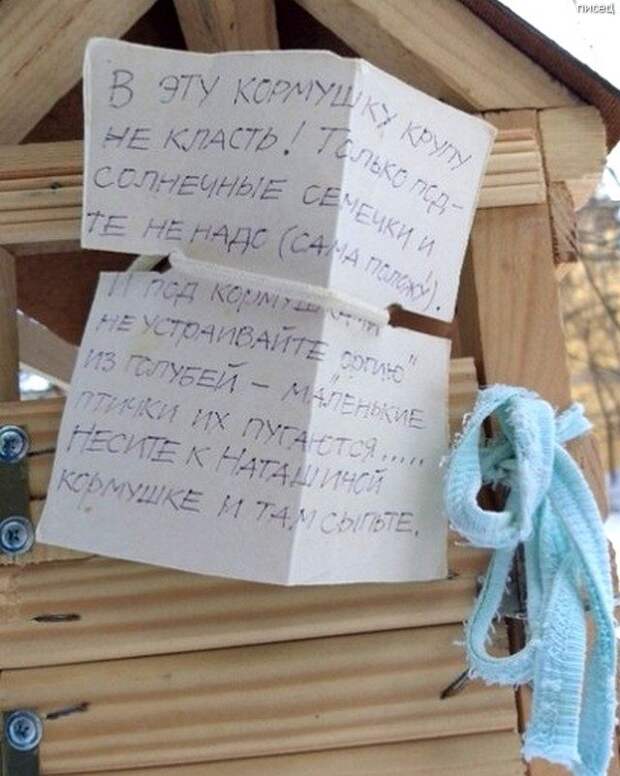 писец
В ЭТУ КОРМУШКУ КРУПУ
НЕ КЛАСТЬ! ТОЛЬКО
СОЛНЕЧНЫЕ СЕМЕЧКИ И
ТЕ НЕ НАДО (САМА ПОЛОЖУ).
И ПОД КОРМУШКАМИ
НЕ УСТРАИВАЙТЕ "ОРГИЮ"
ИЗ ГОЛУБЕЙ – МАЛЕНЬКИЕ
ПТИЧКИ ИХ ПУГАЮТСЯ.....
НЕСИТЕ К НАТАШИНОЙ
КОРМУШКЕ И ТАМ СЫПЬТЕ.